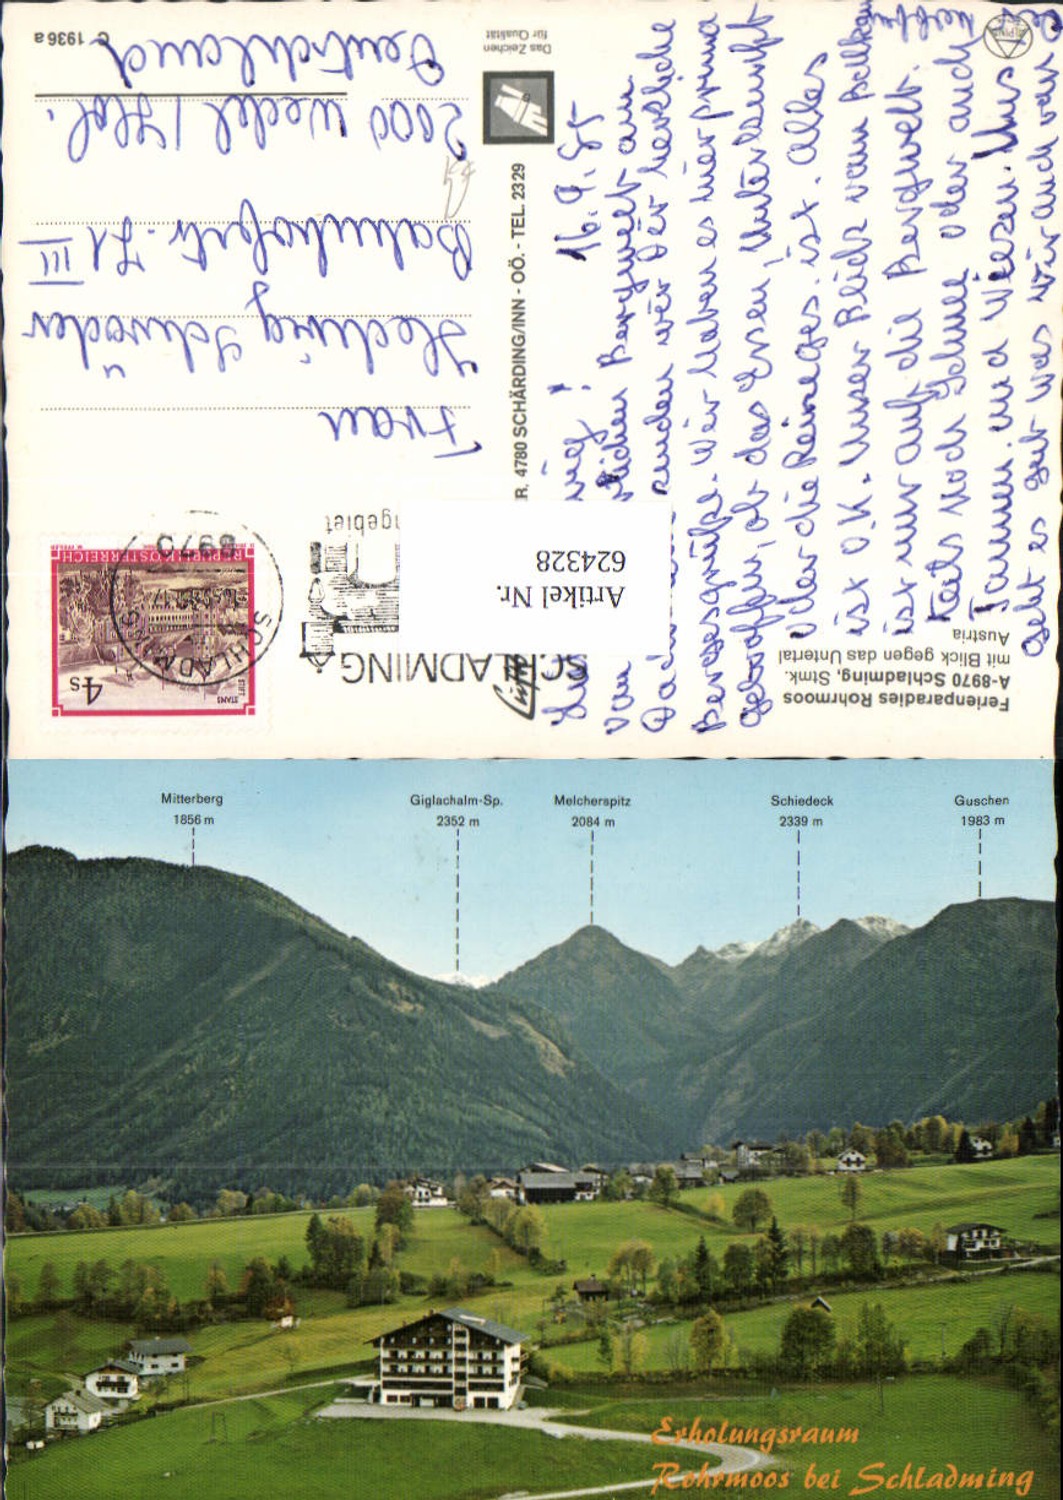 Ferienparadies Rohrmoos
A-8970 Schladming, Stmk.
mit Blick gegen das Untertal
Austria
16.9.85
von
Bergwelt am
senden wir Dir herzliche
Bergesgrüße. Wir haben es hier prima
getroffen, ob das Essen, Unterkunft
oder die Reinages. ist. Alles
ist O.K. Unser Blick vom Balkon
ist nur auf die Bergwelt.
teils noch Schnee oder auch
Tannen und Wiesen. Uns
geht es gut was wir auch von
R. 4780 SCHÄRDING/INN - OÖ. - TEL. 2329
Das Zeichen
für Qualität
C 1936 a
SCHLADMING
ngebiet
8970
SCHLADMING
REPUBLIK ÖSTERREICH
STIFT
STAMS
4 s
Artikel Nr.
624328
Frau
Hedwig Schröder
Bahnhofstr. 71 III
2000 Wedel / Hol.
Deutschland
Mitterberg
1856 m
Giglachalm-Sp.
2352 m
Melcherspitz
2084 m
Schiedeck
2339 m
Guschen
1983 m
Erholungsraum
Rohrmoos bei Schladming